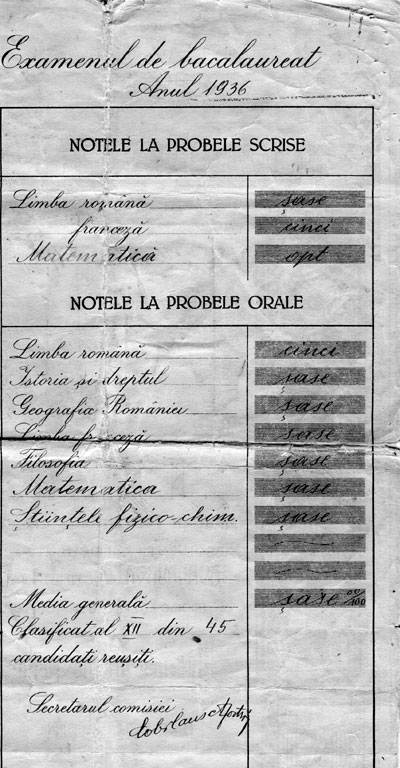 Examenul de bacalaureat
Anul 1936
NOTELE LA PROBELE SCRISE
Limba română șase
franceză cinci
Matematică opt
NOTELE LA PROBELE ORALE
Limba română cinci
Istoria și dreptul șase
Geografia României șase
Limba franceză șase
Filosofia șase
Matematica șase
Științele fizico-chim. șase
Media generală șase /100
Clasificat al XII din 45
candidați reușiti.
Secretarul comisiei